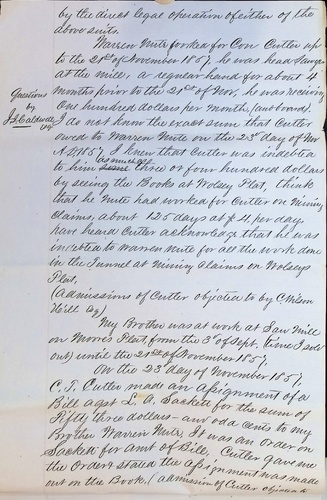 by the direct legal operation of either of the
above suits.
Warren Nute worked for Com Cutler up
to the 21st of November 1857, he was head Sawyer
at the mill, a regular hand for about 4
months prior to the 21st of Nov, he was receiving
One hundred dollars per month, (and board)
Questions
by
J. B. Caldwell
Esq
I do not know the exact sum that Cutler
owed to Warren Nute on the 23d day of Nov
A.D. 1857. I knew that Cutler was indebted
as much as
to him three or four hundred dollars
by seeing the Books at Wolsey Flat, think
that he Nute had worked for Cutler on Mining
Claims, about 125 days at $4, per day
have heard Cutler acknowledge that he was
indebted to Warren Nute for all the work done
in the Tunnel at Mining Claims on Wolseys
Flat,
(Admissions of Cutler objected to by C. Wilson
Hill Esq)
My Brother was at work at Saw Mill
on Moores Flat, from the 3d of Sept. (time I sold
out) until the 21st of November 1857.
On the 23d day of November 1857,
C. T. Cutler made an assignment of a
Bill agst L. A. Sackett for the sum of
Fifty three dollars and odd cents to my
Brother Warren Nute, It was an order on
Sackett for amt of Bill, Cutler gave me
the Order & stated the assignment was made
out on the Book. (admission of Cutler objected to